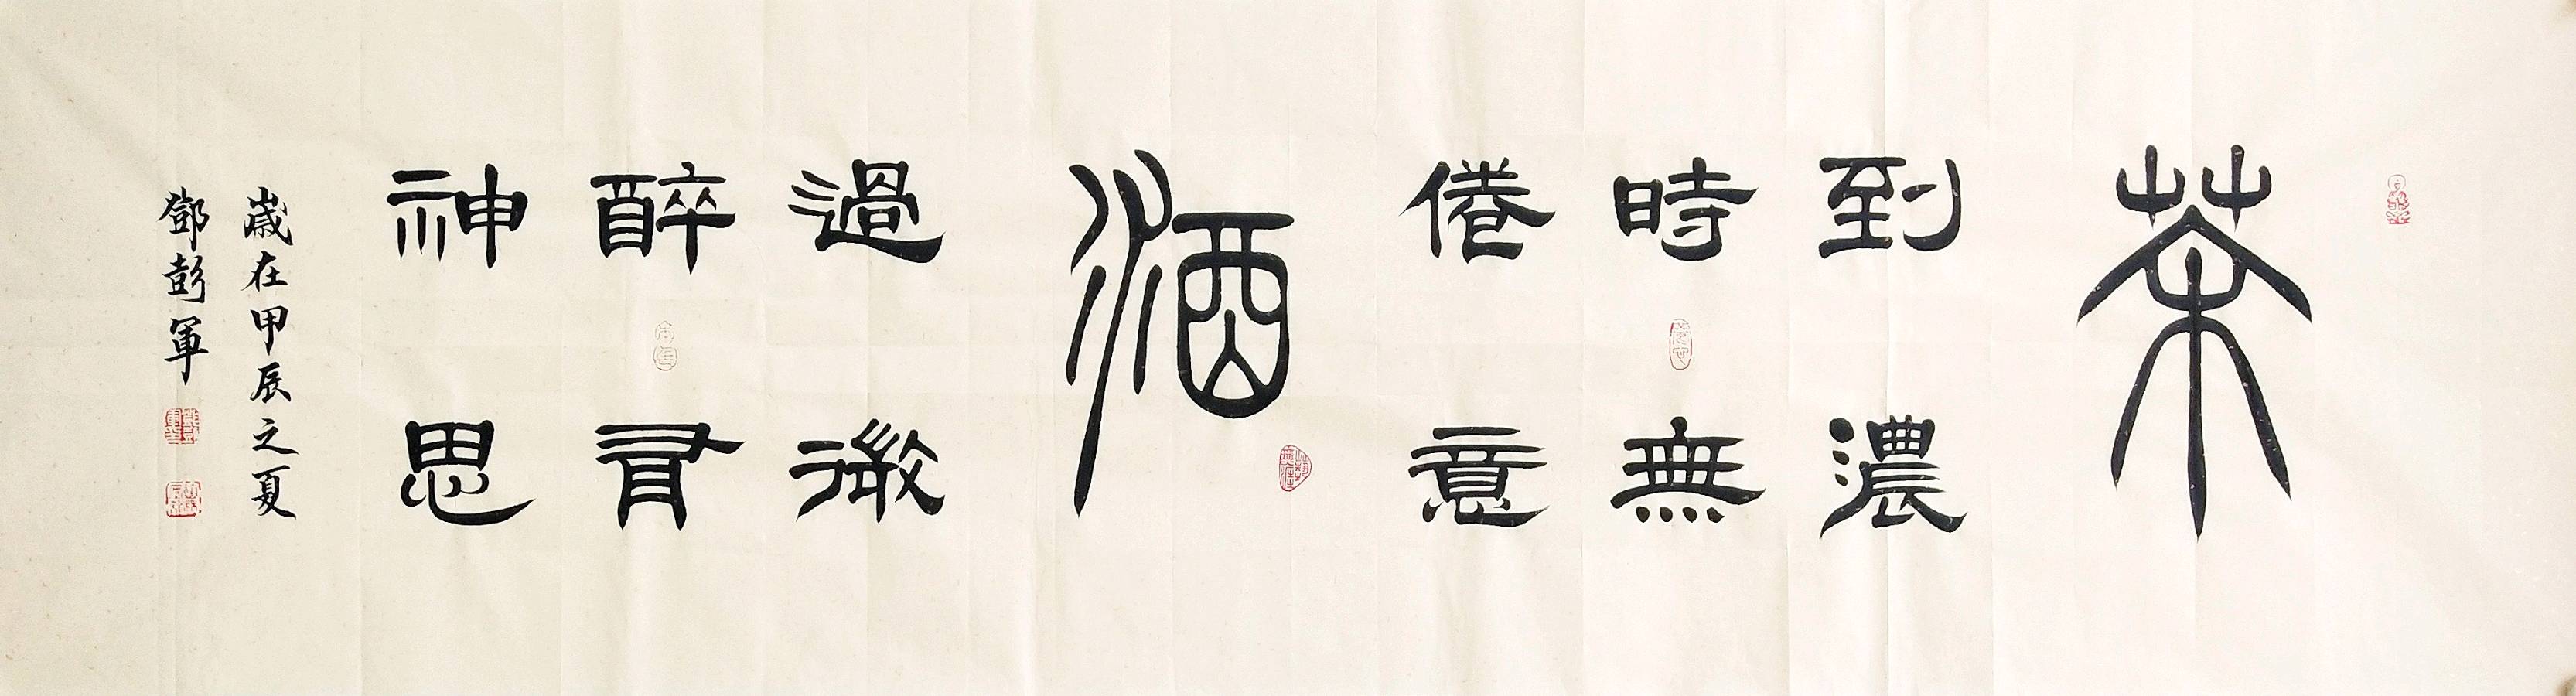 茶
到濃
時無
倦意
酒
過微
醉有
神思
歲在甲辰之夏
鄧彭軍